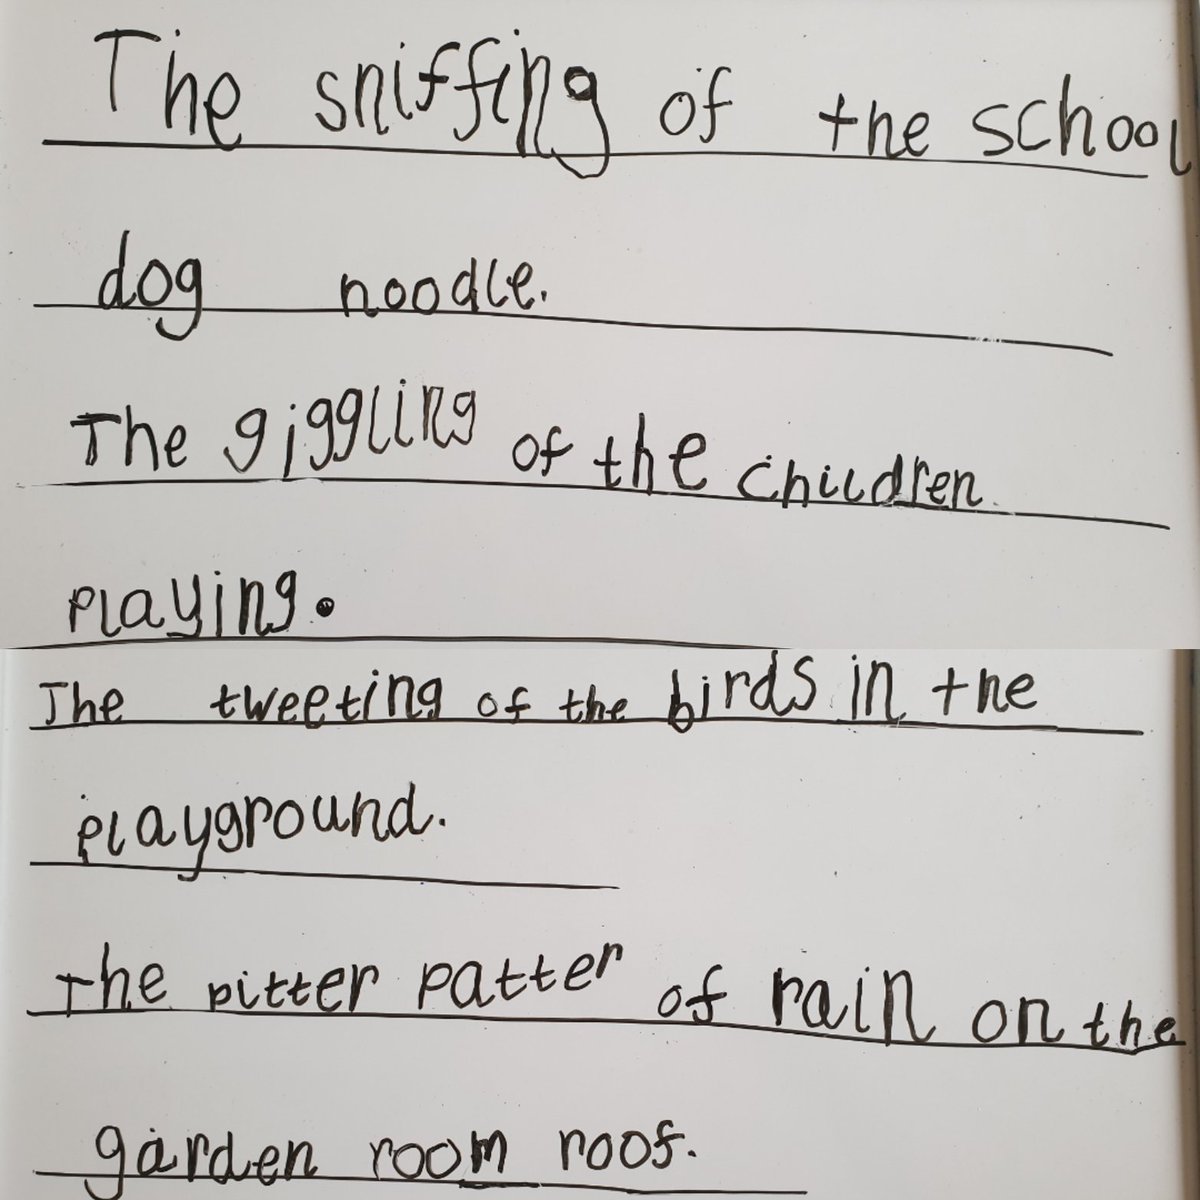 The sniffing of the school
dog noodle.
The giggling of the children
playing.
The tweeting of the birds in the
playground.
The pitter patter of rain on the
garden room roof.